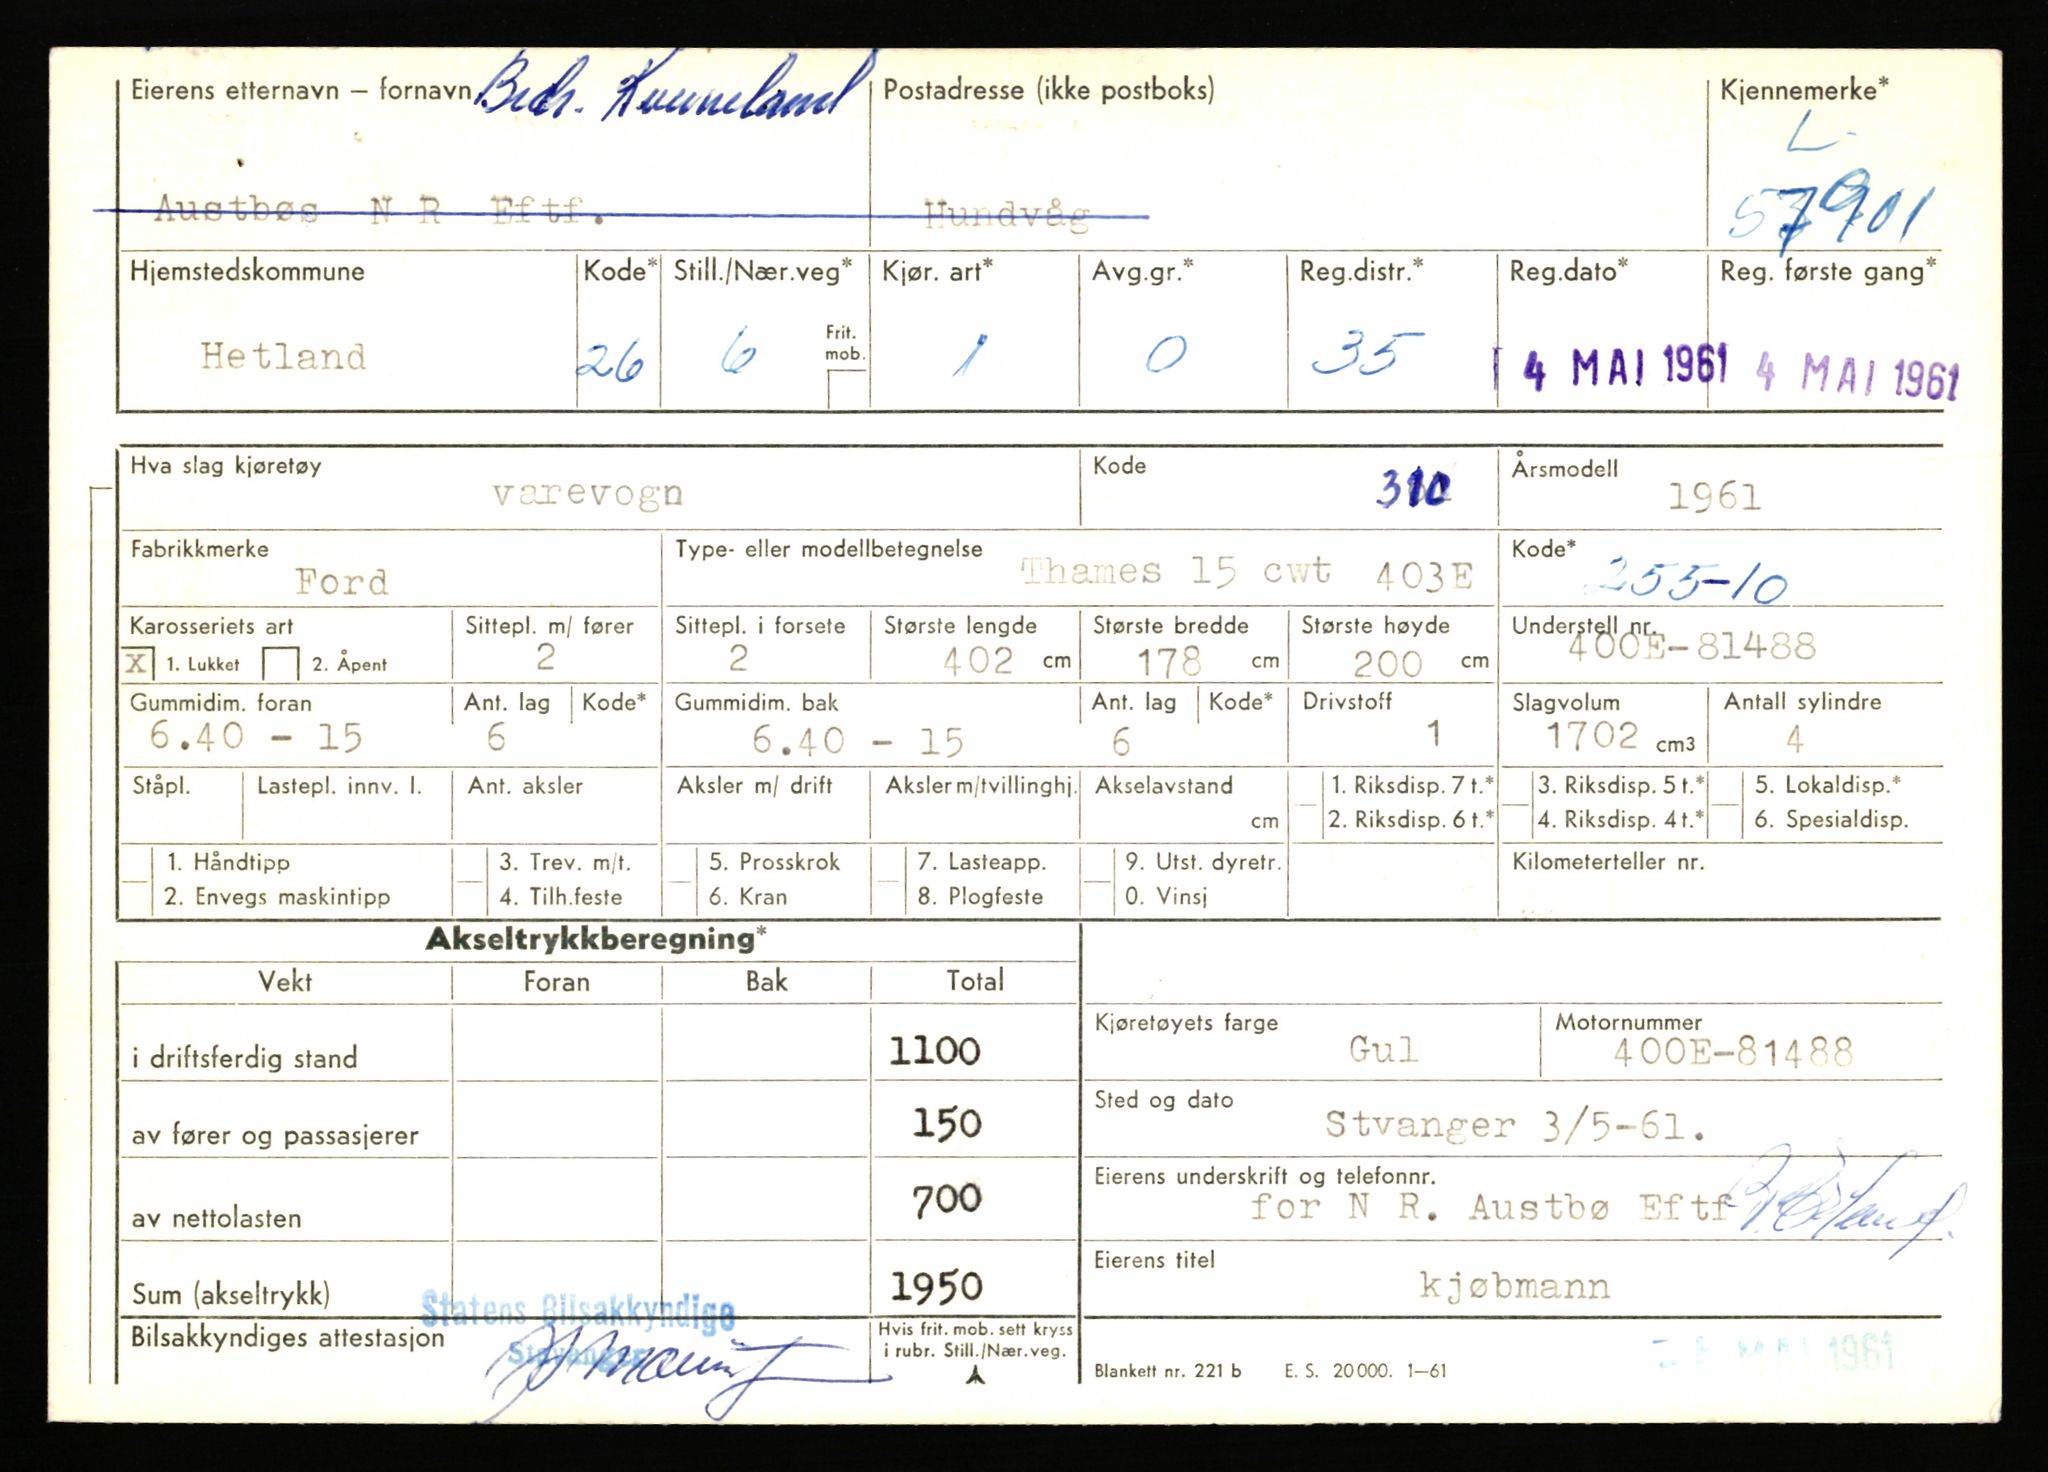 Eierens etternavn – fornavn Brdr. Kvineland
Postadresse (ikke postboks)
Kjennemerke*
L-
57901
Austbøs N R Eftf.
Hundvåg
Hjemstedskommune
Kode*
Still./Nær.veg*
Kjør. art*
Avg.gr.*
Reg.distr.*
Reg.dato*
Reg. første gang*
Hetland
26
6
Frit. mob.
1
0
35
4 MAI 1961
4 MAI 1961
Hva slag kjøretøy
varevogn
Kode
310
Årsmodell
1961
Fabrikkmerke
Ford
Type- eller modellbetegnelse
Thames 15 cwt 403E
Kode*
255-10
Karosseriets art
X 1. Lukket 2. Åpent
Sittepl. m/ fører
2
Sittepl. i forsete
2
Største lengde
402 cm
Største bredde
178 cm
Største høyde
200 cm
Understell nr.
400E-81488
Gummidim. foran
6.40 - 15
Ant. lag
6
Kode*
Gummidim. bak
6.40 - 15
Ant. lag
6
Kode*
Drivstoff
1
Slagvolum
1702 cm3
Antall sylindre
4
Ståpl.
Lastepl. innv. l.
Ant. aksler
Aksler m/ drift
Aksler m/tvillinghj.
Akselavstand
cm
1. Riksdisp. 7 t.*
2. Riksdisp. 6 t.*
3. Riksdisp. 5 t.*
4. Riksdisp. 4 t.*
5. Lokaldisp.*
6. Spesialdisp.
1. Håndtipp
2. Envegs maskintipp
3. Trev. m/t.
4. Tilh.feste
5. Prosskrok
6. Kran
7. Lasteapp.
8. Plogfeste
9. Utst. dyretr.
0. Vinsj
Kilometerteller nr.
Akseltrykkberegning*
Vekt
Foran
Bak
Total
i driftsferdig stand
1100
av fører og passasjerer
150
av nettolasten
700
Sum (akseltrykk)
1950
Kjøretøyets farge
Gul
Motornummer
400E-81488
Sted og dato
Stvanger 3/5-61.
Eierens underskrift og telefonnr.
for N R. Austbø Eftf
Eierens titel
kjøbmann
Bilsakkyndiges attestasjon
Statens Bilsakkyndige
Stavanger
Hvis frit. mob. sett kryss
i rubr. Still./Nær.veg.
Blankett nr. 221 b E. S. 20000. 1–61
MAI 1961